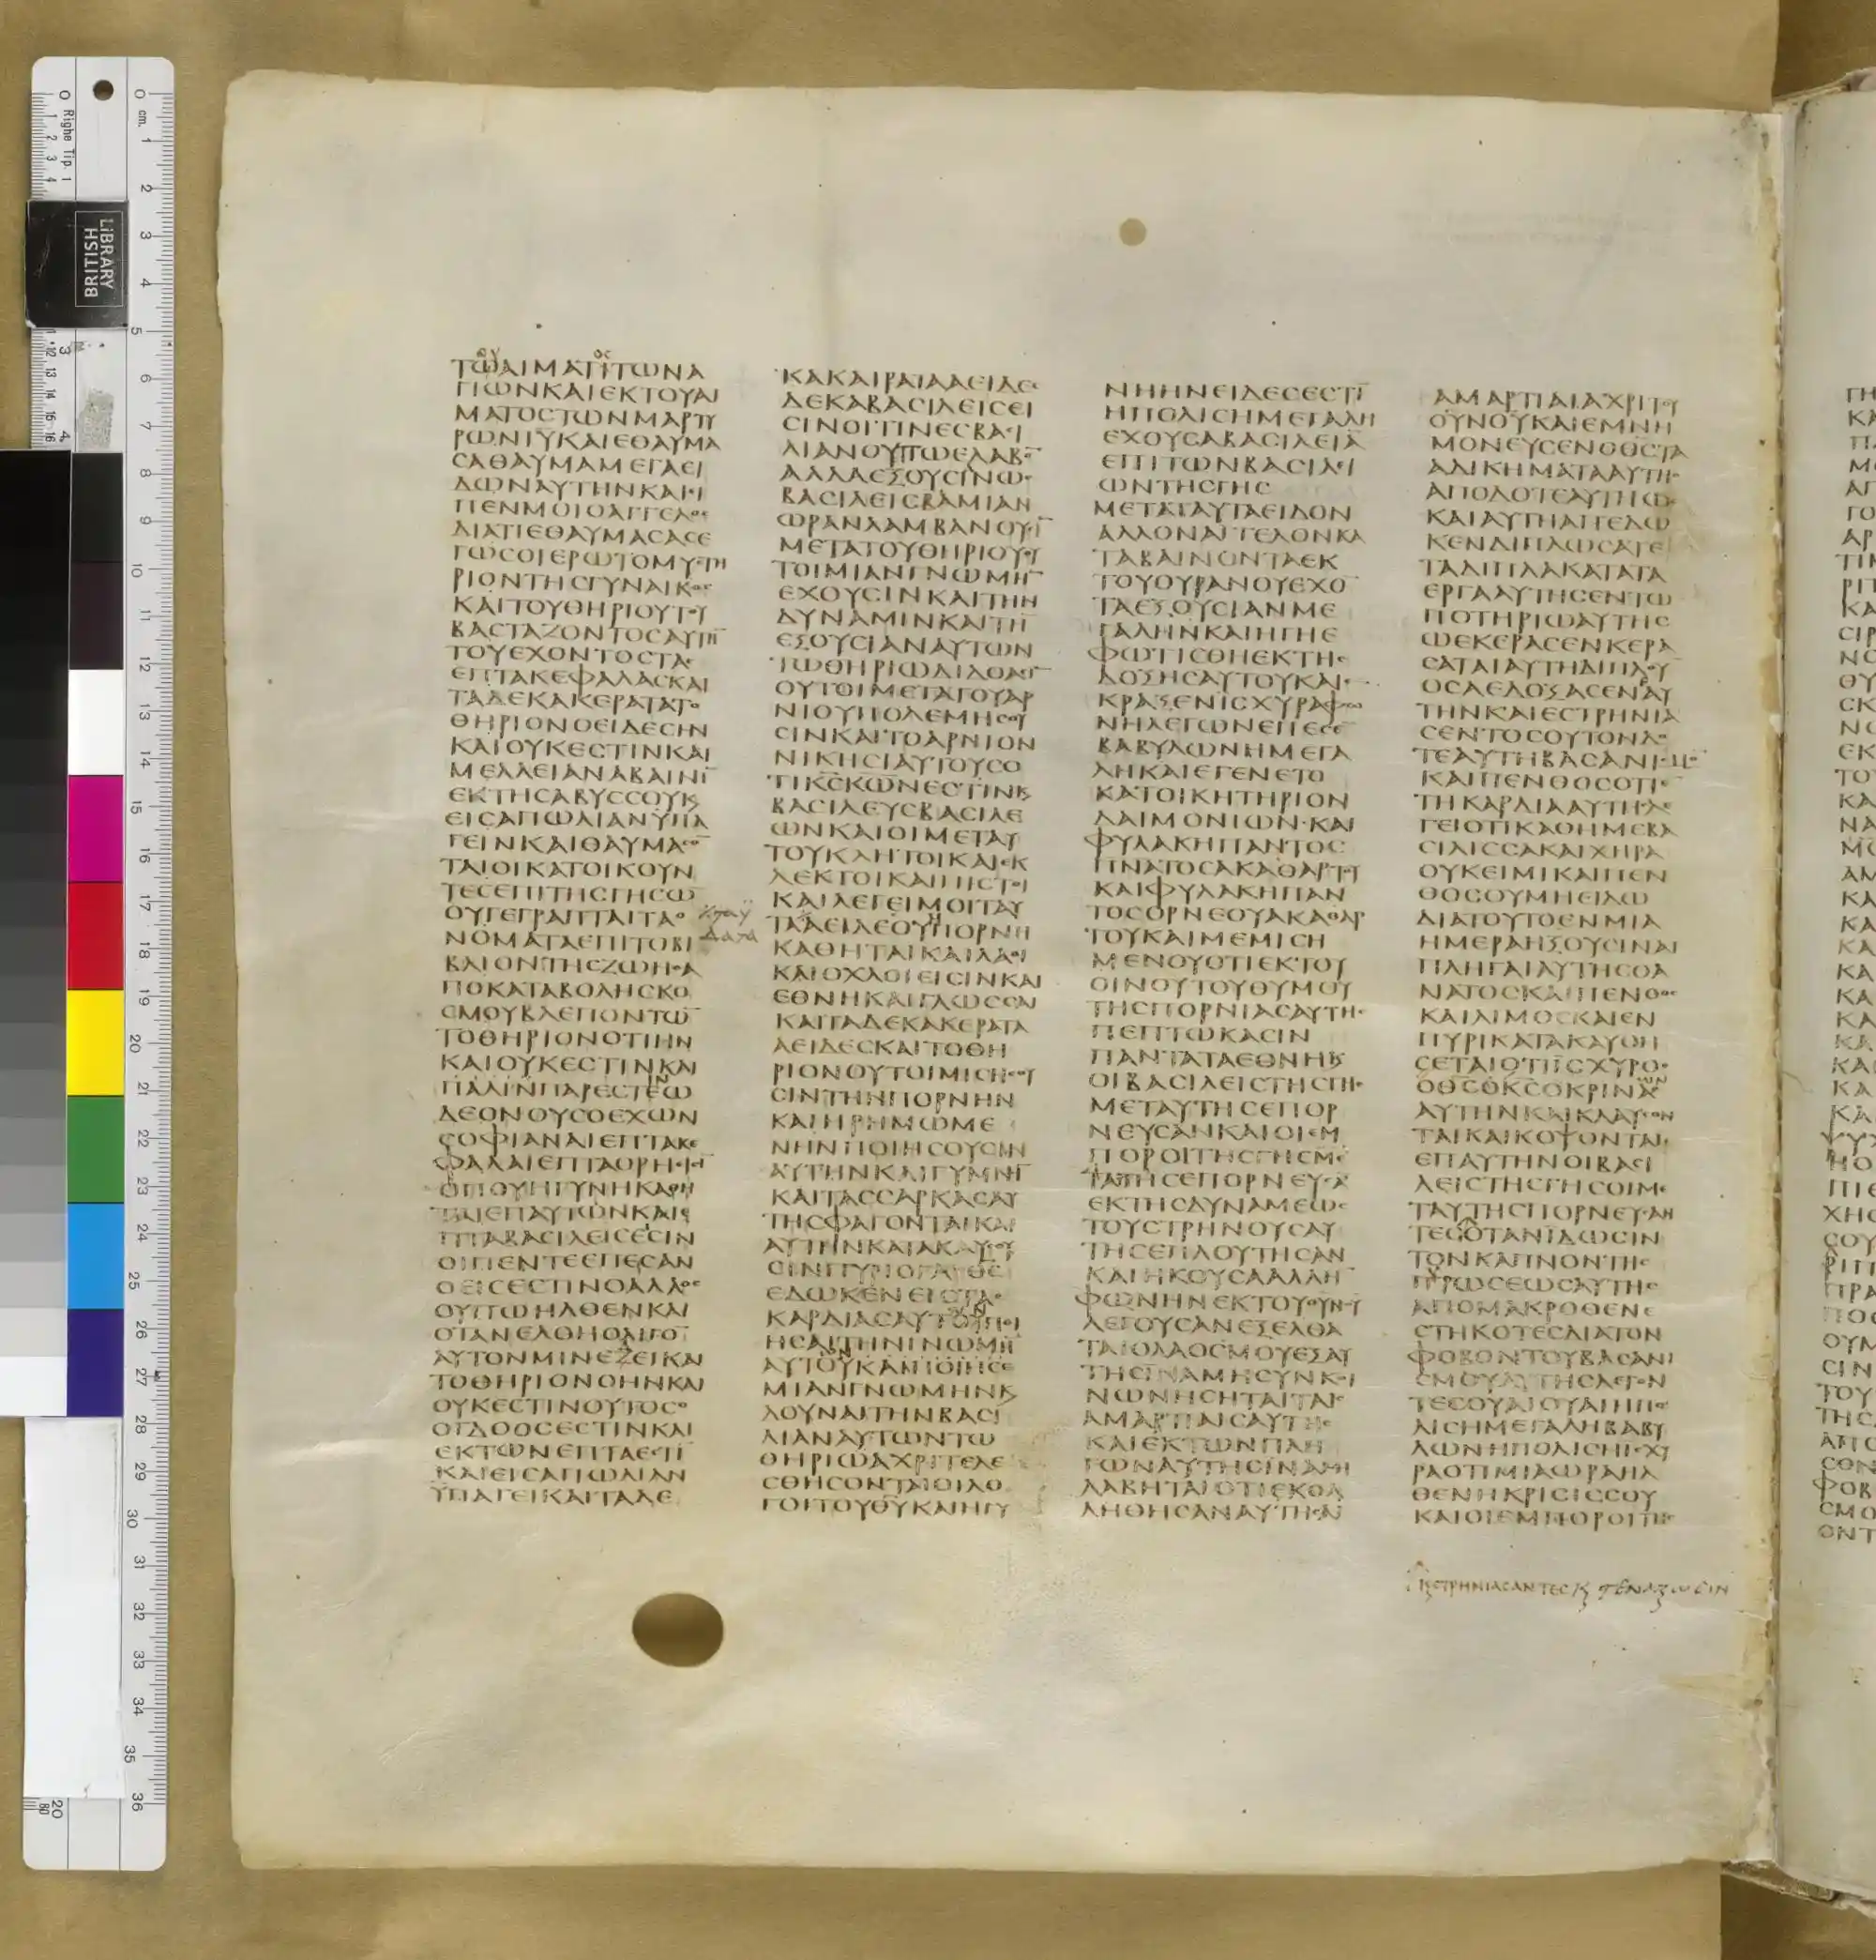 ΤΩΑΙΜΑΤΙΤΩΝΑ
ΓΙΩΝΚΑΙΕΚΤΟΥΑΙ
ΜΑΤΟϹΤΩΝΜΑΡΤΥ
ΡΩΝΙΥΚΑΙΕΘΑΥΜΑ
ϹΑΘΑΥΜΑΜΕΓΑΕΙ
ΔΩΝΑΥΤΗΝΚΑΙΕΙ
ΠΕΝΜΟΙΟΑΓΓΕΛΟϹ
ΔΙΑΤΙΕΘΑΥΜΑϹΑϹΕ
ΓΩϹΟΙΕΡΩΤΟΜΥϹΤΗ
ΡΙΟΝΤΗϹΓΥΝΑΙΚΟϹ
ΚΑΙΤΟΥΘΗΡΙΟΥΤΟΥ
ΒΑϹΤΑΖΟΝΤΟϹΑΥΤΗ̅
ΤΟΥΕΧΟΝΤΟϹΤΑϹ
ΕΠΤΑΚΕΦΑΛΑϹΚΑΙ
ΤΑΔΕΚΑΚΕΡΑΤΑΤΟ
ΘΗΡΙΟΝΟΕΙΔΕϹΗΝ
ΚΑΙΟΥΚΕϹΤΙΝΚΑΙ
ΜΕΛΛΕΙΑΝΑΒΑΙΝΙ̅
ΕΚΤΗϹΑΒΥϹϹΟΥΚϗ
ΕΙϹΑΠΩΛΙΑΝΥΠΑ
ΓΕΙΝΚΑΙΘΑΥΜΑϹΟ̅
ΤΑΙΟΙΚΑΤΟΙΚΟΥΝ
ΤΕϹΕΠΙΤΗϹΓΗϹΩ̅
ΟΥΓΕΓΡΑΠΤΑΙΤΑΟ
ΝΟΜΑΤΑΕΠΙΤΟΒΙ
ΒΛΙΟΝΤΗϹΖΩΗϹΑ
ΠΟΚΑΤΑΒΟΛΗϹΚΟ
ϹΜΟΥΒΛΕΠΟΝΤΩ̅
ΤΟΘΗΡΙΟΝΟΤΙΗΝ
ΚΑΙΟΥΚΕϹΤΙΝΚΑΙ
ΠΑΛΙΝΠΑΡΕϹΤΕΩ
ΔΕΟΝΟΥϹΟΕΧΩΝ
ϹΟΦΙΑΝΑΙΕΠΤΑΚΕ
ΦΑΛΑΙΕΠΤΑΟΡΗΕΙϹΙ̅
ΟΠΟΥΗΓΥΝΗΚΑΘΗ
ΤΑΙΕΠΑΥΤΩΝΚΑΙΕ
ΠΤΑΒΑϹΙΛΕΙϹΕϹΙΝ
ΟΙΠΕΝΤΕΕΠΕϹΑΝ
ΟΕΙϹΕϹΤΙΝΟΑΛΛΟϹ
ΟΥΠΩΗΛΘΕΝΚΑΙ
ΟΤΑΝΕΛΘΗΟΛΙΓΟ̅
ΑΥΤΟΝΜΙΝΕΔΕΙΚΑΙ
ΤΟΘΗΡΙΟΝΟΗΝΚΑΙ
ΟΥΚΕϹΤΙΝΟΥΤΟϹΟ
ΟΓΔΟΟϹΕϹΤΙΝΚΑΙ
ΕΚΤΩΝΕΠΤΑΕϹΤΙ̅
ΚΑΙΕΙϹΑΠΩΛΙΑΝ
ΥΠΑΓΕΙΚΑΙΤΑΔΕ
ΚΑΚΑΙΡΑΤΑΑΕΙΔΕϹ
ΔΕΚΑΒΑϹΙΛΕΙϹΕΙ
ϹΙΝΟΙΤΙΝΕϹΒΑϹΙ
ΛΙΑΝΟΥΠΩΕΛΑΒΟ̅
ΑΛΛΑΕΞΟΥϹΙΝΩϹ
ΒΑϹΙΛΕΙϹΒΑΜΙΑΝ
ΩΡΑΝΛΑΜΒΑΝΟΥϹΙ̅
ΜΕΤΑΤΟΥΘΗΡΙΟΥΟΥ
ΤΟΙΜΙΑΝΓΝΩΜΗ̅
ΕΧΟΥϹΙΝΚΑΙΤΗΝ
ΔΥΝΑΜΙΝΚΑΙΤΗ̅
ΕΞΟΥϹΙΑΝΑΥΤΩΝ
ΤΩΘΗΡΙΩΔΙΔΟΑϹΙ̅
ΟΥΤΟΙΜΕΤΑΤΟΥΑΡ
ΝΙΟΥΠΟΛΕΜΗϹΟΥ
ϹΙΝΚΑΙΤΟΑΡΝΙΟΝ
ΝΙΚΗϹΙΑΥΤΟΥϹΟ
ΤΙΚϹΚΩΝΕϹΤΙΝϗ
ΒΑϹΙΛΕΥϹΒΑϹΙΛΕ
ΩΝΚΑΙΟΙΜΕΤΑΥ
ΤΟΥΚΛΗΤΟΙΚΑΙΕΚ
ΛΕΚΤΟΙΚΑΙΠΙϹΤΟΙ
ΚΑΙΛΕΓΕΙΜΟΙΤΑΥ
ΤΑΑΕΙΔΕϹΟΥΗΠΟΡΝΗ
ΚΑΘΗΤΑΙΚΑΙΛΑΟΙ
ΚΑΙΟΧΛΟΙΕΙϹΙΝΚΑΙ
ΕΘΝΗΚΑΙΓΛΩϹϹΑΙ
ΚΑΙΤΑΔΕΚΑΚΕΡΑΤΑ
ΑΕΙΔΕϹΚΑΙΤΟΘΗ
ΡΙΟΝΟΥΤΟΙΜΙϹΗϹΟΥ
ϹΙΝΤΗΝΠΟΡΝΗΝ
ΚΑΙΗΡΗΜΩΜΕ
ΝΗΝΠΟΙΗϹΟΥϹΙΝ
ΑΥΤΗΝΚΑΙΓΥΜΝΗ̅
ΚΑΙΤΑϹϹΑΡΚΑϹΑΥ
ΤΗϹΦΑΓΟΝΤΑΙΚΑΙ
ΑΥΤΗΝΚΑΤΑΚΑΥϹΟΥ
ϹΙΝΠΥΡΙΟΓΑΡΘϹ
ΕΔΩΚΕΝΕΙϹΤΑϹ
ΚΑΡΔΙΑϹΑΥΤΟΥΠΟΙ
ΗϹΑΙΤΗΝΓΝΩΜΗ̅
ΑΥΤΟΥΚΑΙΠΟΙΗϹΕ
ΜΙΑΝΓΝΩΜΗΝϗ
ΔΟΥΝΑΙΤΗΝΒΑϹΙ
ΛΙΑΝΑΥΤΩΝΤΩ
ΘΗΡΙΩΑΧΡΙΤΕΛΕ
ϹΘΗϹΟΝΤΑΙΟΙΛΟ
ΓΟΙΤΟΥΘΥΚΑΙΗΓΥ
ΝΗΗΝΕΙΔΕϹΕϹΤΙ̅
ΗΠΟΛΙϹΗΜΕΓΑΛΗ
ΕΧΟΥϹΑΒΑϹΙΛΕΙΑ̅
ΕΠΙΤΩΝΒΑϹΙΛΕΙ
ΩΝΤΗϹΓΗϹ
ΜΕΤΑΤΑΥΤΑΕΙΔΟΝ
ΑΛΛΟΝΑΓΓΕΛΟΝΚΑ
ΤΑΒΑΙΝΟΝΤΑΕΚ
ΤΟΥΟΥΡΑΝΟΥΕΧΟ̅
ΤΑΕΞΟΥϹΙΑΝΜΕ
ΓΑΛΗΝΚΑΙΗΓΗΕ
ΦΩΤΙϹΘΗΕΚΤΗϹ
ΔΟΞΗϹΑΥΤΟΥΚΑΙΕ
ΚΡΑΞΕΝΙϹΧΥΡΑΦΩ
ΝΗΛΕΓΩΝΕΠΕϹΕ
ΒΑΒΥΛΩΝΗΜΕΓΑ
ΛΗΚΑΙΕΓΕΝΕΤΟ
ΚΑΤΟΙΚΗΤΗΡΙΟΝ
ΔΑΙΜΟΝΙΩΝΚΑΙ
ΦΥΛΑΚΗΠΑΝΤΟϹ
ΠΝΑΤΟϹΑΚΑΘΑΡΤΟΥ
ΚΑΙΦΥΛΑΚΗΠΑΝ
ΤΟϹΟΡΝΕΟΥΑΚΑΘΑΡ
ΤΟΥΚΑΙΜΕΜΙϹΗ
ΜΕΝΟΥΟΤΙΕΚΤΟΥ
ΟΙΝΟΥΤΟΥΘΥΜΟΥ
ΤΗϹΠΟΡΝΙΑϹΑΥΤΗϹ
ΠΕΠΤΩΚΑϹΙΝ
ΠΑΝΤΑΤΑΕΘΝΗϗ
ΟΙΒΑϹΙΛΕΙϹΤΗϹΓΗϹ
ΜΕΤΑΥΤΗϹΕΠΟΡ
ΝΕΥϹΑΝΚΑΙΟΙΕΜ
ΠΟΡΟΙΤΗϹΓΗϹΜΕ
ΤΑΥΤΗϹΕΠΟΡΝΕΥϹΑ̅
ΕΚΤΗϹΔΥΝΑΜΕΩϹ
ΤΟΥϹΤΡΗΝΟΥϹΑΥ
ΤΗϹΕΠΛΟΥΤΗϹΑΝ
ΚΑΙΗΚΟΥϹΑΑΛΛΗ̅
ΦΩΝΗΝΕΚΤΟΥΟΥΝΟΥ
ΛΕΓΟΥϹΑΝΕΞΕΛΘΑ
ΤΑΙΟΛΑΟϹΜΟΥΕΞΑΥ
ΤΗϹΙΝΑΜΗϹΥΝΚΟΙ
ΝΩΝΗϹΗΤΑΙΤΑΙϹ
ΑΜΑΡΤΙΑΙϹΑΥΤΗϹ
ΚΑΙΕΚΤΩΝΠΛΗ
ΓΩΝΑΥΤΗϹΙΝΑΜΗ
ΛΑΒΗΤΑΙΟΤΙΕΚΟΛ
ΛΗΘΗϹΑΝΑΥΤΗϹΑΙ
ΑΜΑΡΤΙΑΙΑΧΡΙΤΟΥ
ΟΥΝΟΥΚΑΙΕΜΝΗ
ΜΟΝΕΥϹΕΝΟΘϹΤΑ
ΑΔΙΚΗΜΑΤΑΑΥΤΗϹ
ΑΠΟΔΟΤΕΑΥΤΗΩϹ
ΚΑΙΑΥΤΗΑΠΕΔΩ
ΚΕΝΔΙΠΛΩϹΑΤΕ
ΤΑΔΙΠΛΑΚΑΤΑΤΑ
ΕΡΓΑΑΥΤΗϹΕΝΤΩ
ΠΟΤΗΡΙΩΑΥΤΗϹ
ΩΕΚΕΡΑϹΕΝΚΕΡΑ
ϹΑΤΑΙΑΥΤΗΔΙΠΛΟΥ
ΟϹΑΕΔΟΞΑϹΕΝΑΥ
ΤΗΝΚΑΙΕϹΤΡΗΝΙΑ
ϹΕΝΤΟϹΟΥΤΟΝΔΟ
ΤΕΑΥΤΗΒΑϹΑΝΙϹΜΟ̅
ΚΑΙΠΕΝΘΟϹΟΤΙΕ̅
ΤΗΚΑΡΔΙΑΑΥΤΗϹΛΕ
ΓΕΙΟΤΙΚΑΘΗΜΕΒΑ
ϹΙΛΙϹϹΑΚΑΙΧΗΡΑ
ΟΥΚΕΙΜΙΚΑΙΠΕΝ
ΘΟϹΟΥΜΗΕΙΔΩ
ΔΙΑΤΟΥΤΟΕΝΜΙΑ
ΗΜΕΡΑΗΞΟΥϹΙΝΑΙ
ΠΛΗΓΑΙΑΥΤΗϹΘΑ
ΝΑΤΟϹΚΑΙΠΕΝΘΟϹ
ΚΑΙΛΙΜΟϹΚΑΙΕΝ
ΠΥΡΙΚΑΤΑΚΑΥΘΗ
ϹΕΤΑΙΟΤΙΙϹΧΥΡΟϹ
ΟΘϹΟΚϹΟΚΡΙΝΑϹ
ΑΥΤΗΝΚΑΙΚΛΑΥϹΟΝ
ΤΑΙΚΑΙΚΟΨΟΝΤΑΙ
ΕΠΑΥΤΗΝΟΙΒΑϹΙ
ΛΕΙϹΤΗϹΓΗϹΟΙΜΕ
ΤΑΥΤΗϹΠΟΡΝΕΥϹΑΝ
ΤΕϹΟΤΑΝΙΔΩϹΙΝ
ΤΟΝΚΑΠΝΟΝΤΗϹ
ΠΥΡΩϹΕΩϹΑΥΤΗϹ
ΑΠΟΜΑΚΡΟΘΕΝΕ
ϹΤΗΚΟΤΕϹΔΙΑΤΟΝ
ΦΟΒΟΝΤΟΥΒΑϹΑΝΙ
ϹΜΟΥΑΥΤΗϹΛΕΓΟΝ
ΤΕϹΟΥΑΙΟΥΑΙΗΠΟ
ΛΙϹΗΜΕΓΑΛΗΒΑΒΥ
ΛΩΝΗΠΟΛΙϹΗΙϹΧΥ
ΡΑΟΤΙΜΙΑΩΡΑΗΛ
ΘΕΝΗΚΡΙϹΙϹϹΟΥ
ΚΑΙΟΙΕΜΠΟΡΟΙΤΗϹ
ϗϹΤΡΗΝΙΑϹΑΝΤΕϹϗ